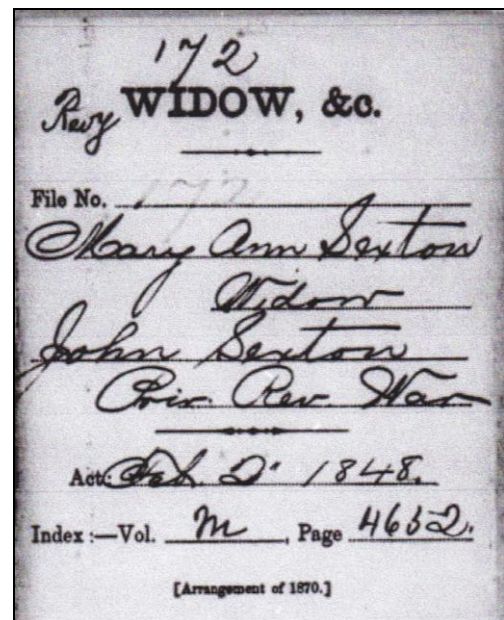 172
Revy WIDOW, &c.
File No. 172
Mary Ann Sexton
Widow
John Sexton
Priv. Rev. War
Act: Feb. 2" 1848.
Index :—Vol. M , Page 4652.
[Arrangement of 1870.]